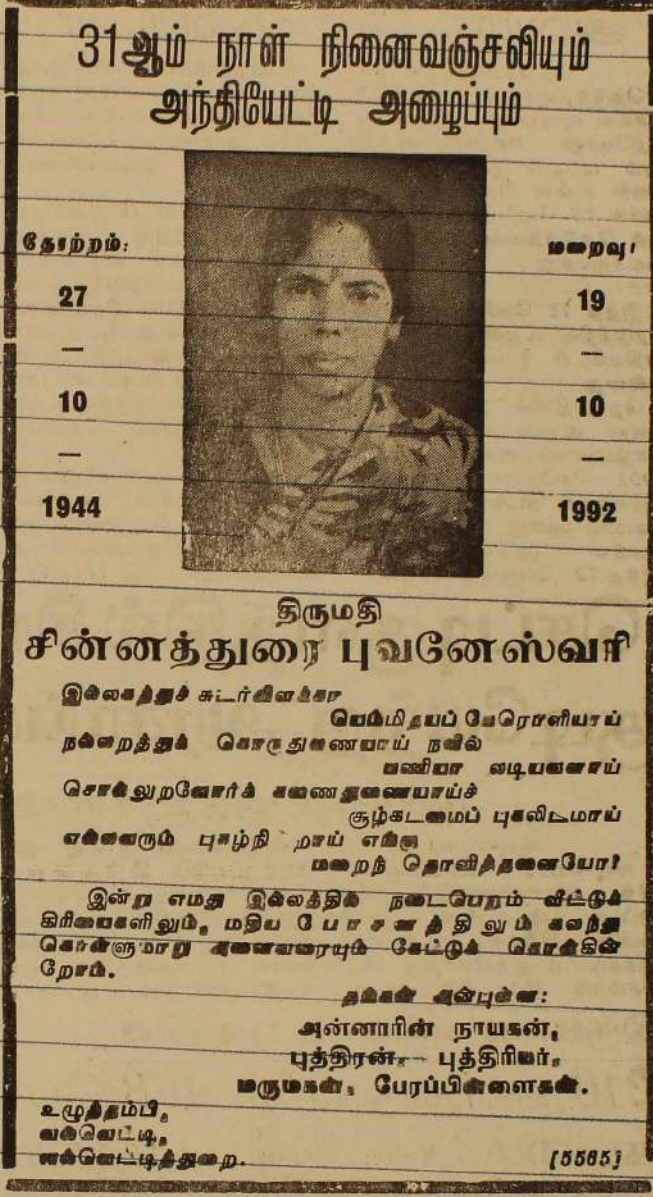 31ஆம் நாள் நினைவஞ்சலியும்
அந்தியேட்டி அழைப்பும்
தோற்றம்:
27
—
10
—
1944
மறைவு:
19
—
10
—
1992
திருமதி
சின்னத்துரை புவனேஸ்வரி
இல்லகத்துச் சுடர்விளக்கா
யெம்மிதயப் பேரொளியாய்
நல்லறத்துக் கொருதுணையாய் நவில்
பணியா லடியவளாய்
சொல்லுறவோர்க் கணைதுணையாய்ச்
சூழ்கடமைப் புகலிடமாய்
எல்லவரும் புகழ்நி றாய் எங்கு
மறைந் தொளித்தனையோ?
இன்று எமது இல்லத்தில் நடைபெறும் வீட்டுக்
கிரியைகளிலும், மதிய போசனத்திலும் கலந்து
கொள்ளுமாறு அனைவரையும் கேட்டுக் கொள்கின்
றோம்.
தங்கள் அன்புள்ள:
அன்னாரின் நாயகன்,
புத்திரன், புத்திரியர்,
மருமகன், பேரப்பிள்ளைகள்.
உழுத்தம்பி,
வல்வெட்டி,
வல்வெட்டித்துறை.
[5565]